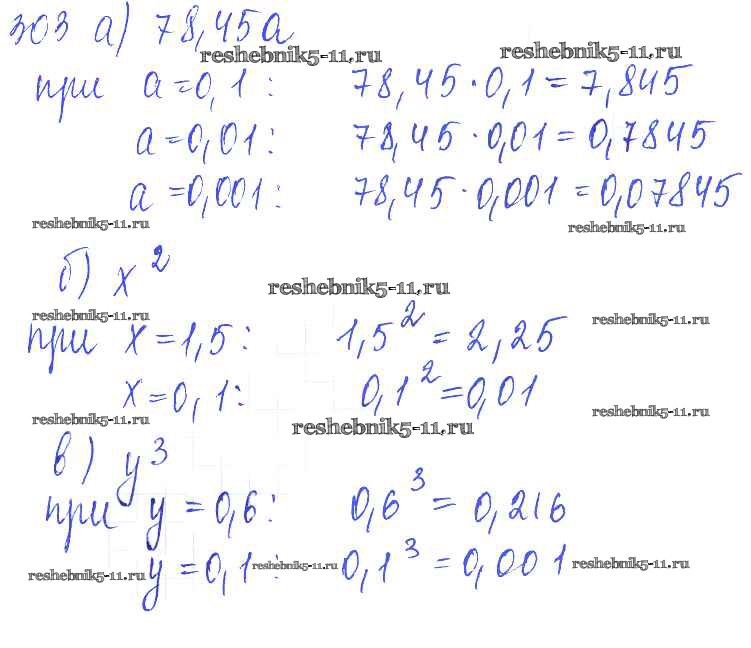 303 а) 78,45a
reshebnik5-11.ru reshebnik5-11.ru
при a=0,1: 78,45·0,1=7,845
a=0,01: 78,45·0,01=0,7845
a=0,001: 78,45·0,001=0,07845
reshebnik5-11.ru reshebnik5-11.ru
б) x²
reshebnik5-11.ru
reshebnik5-11.ru reshebnik5-11.ru
при x=1,5: 1,5²=2,25
x=0,1: 0,1²=0,01
reshebnik5-11.ru reshebnik5-11.ru reshebnik5-11.ru
в) y³
при y=0,6: 0,6³=0,216
y=0,1: 0,1³=0,001
reshebnik5-11.ru reshebnik5-11.ru reshebnik5-11.ru